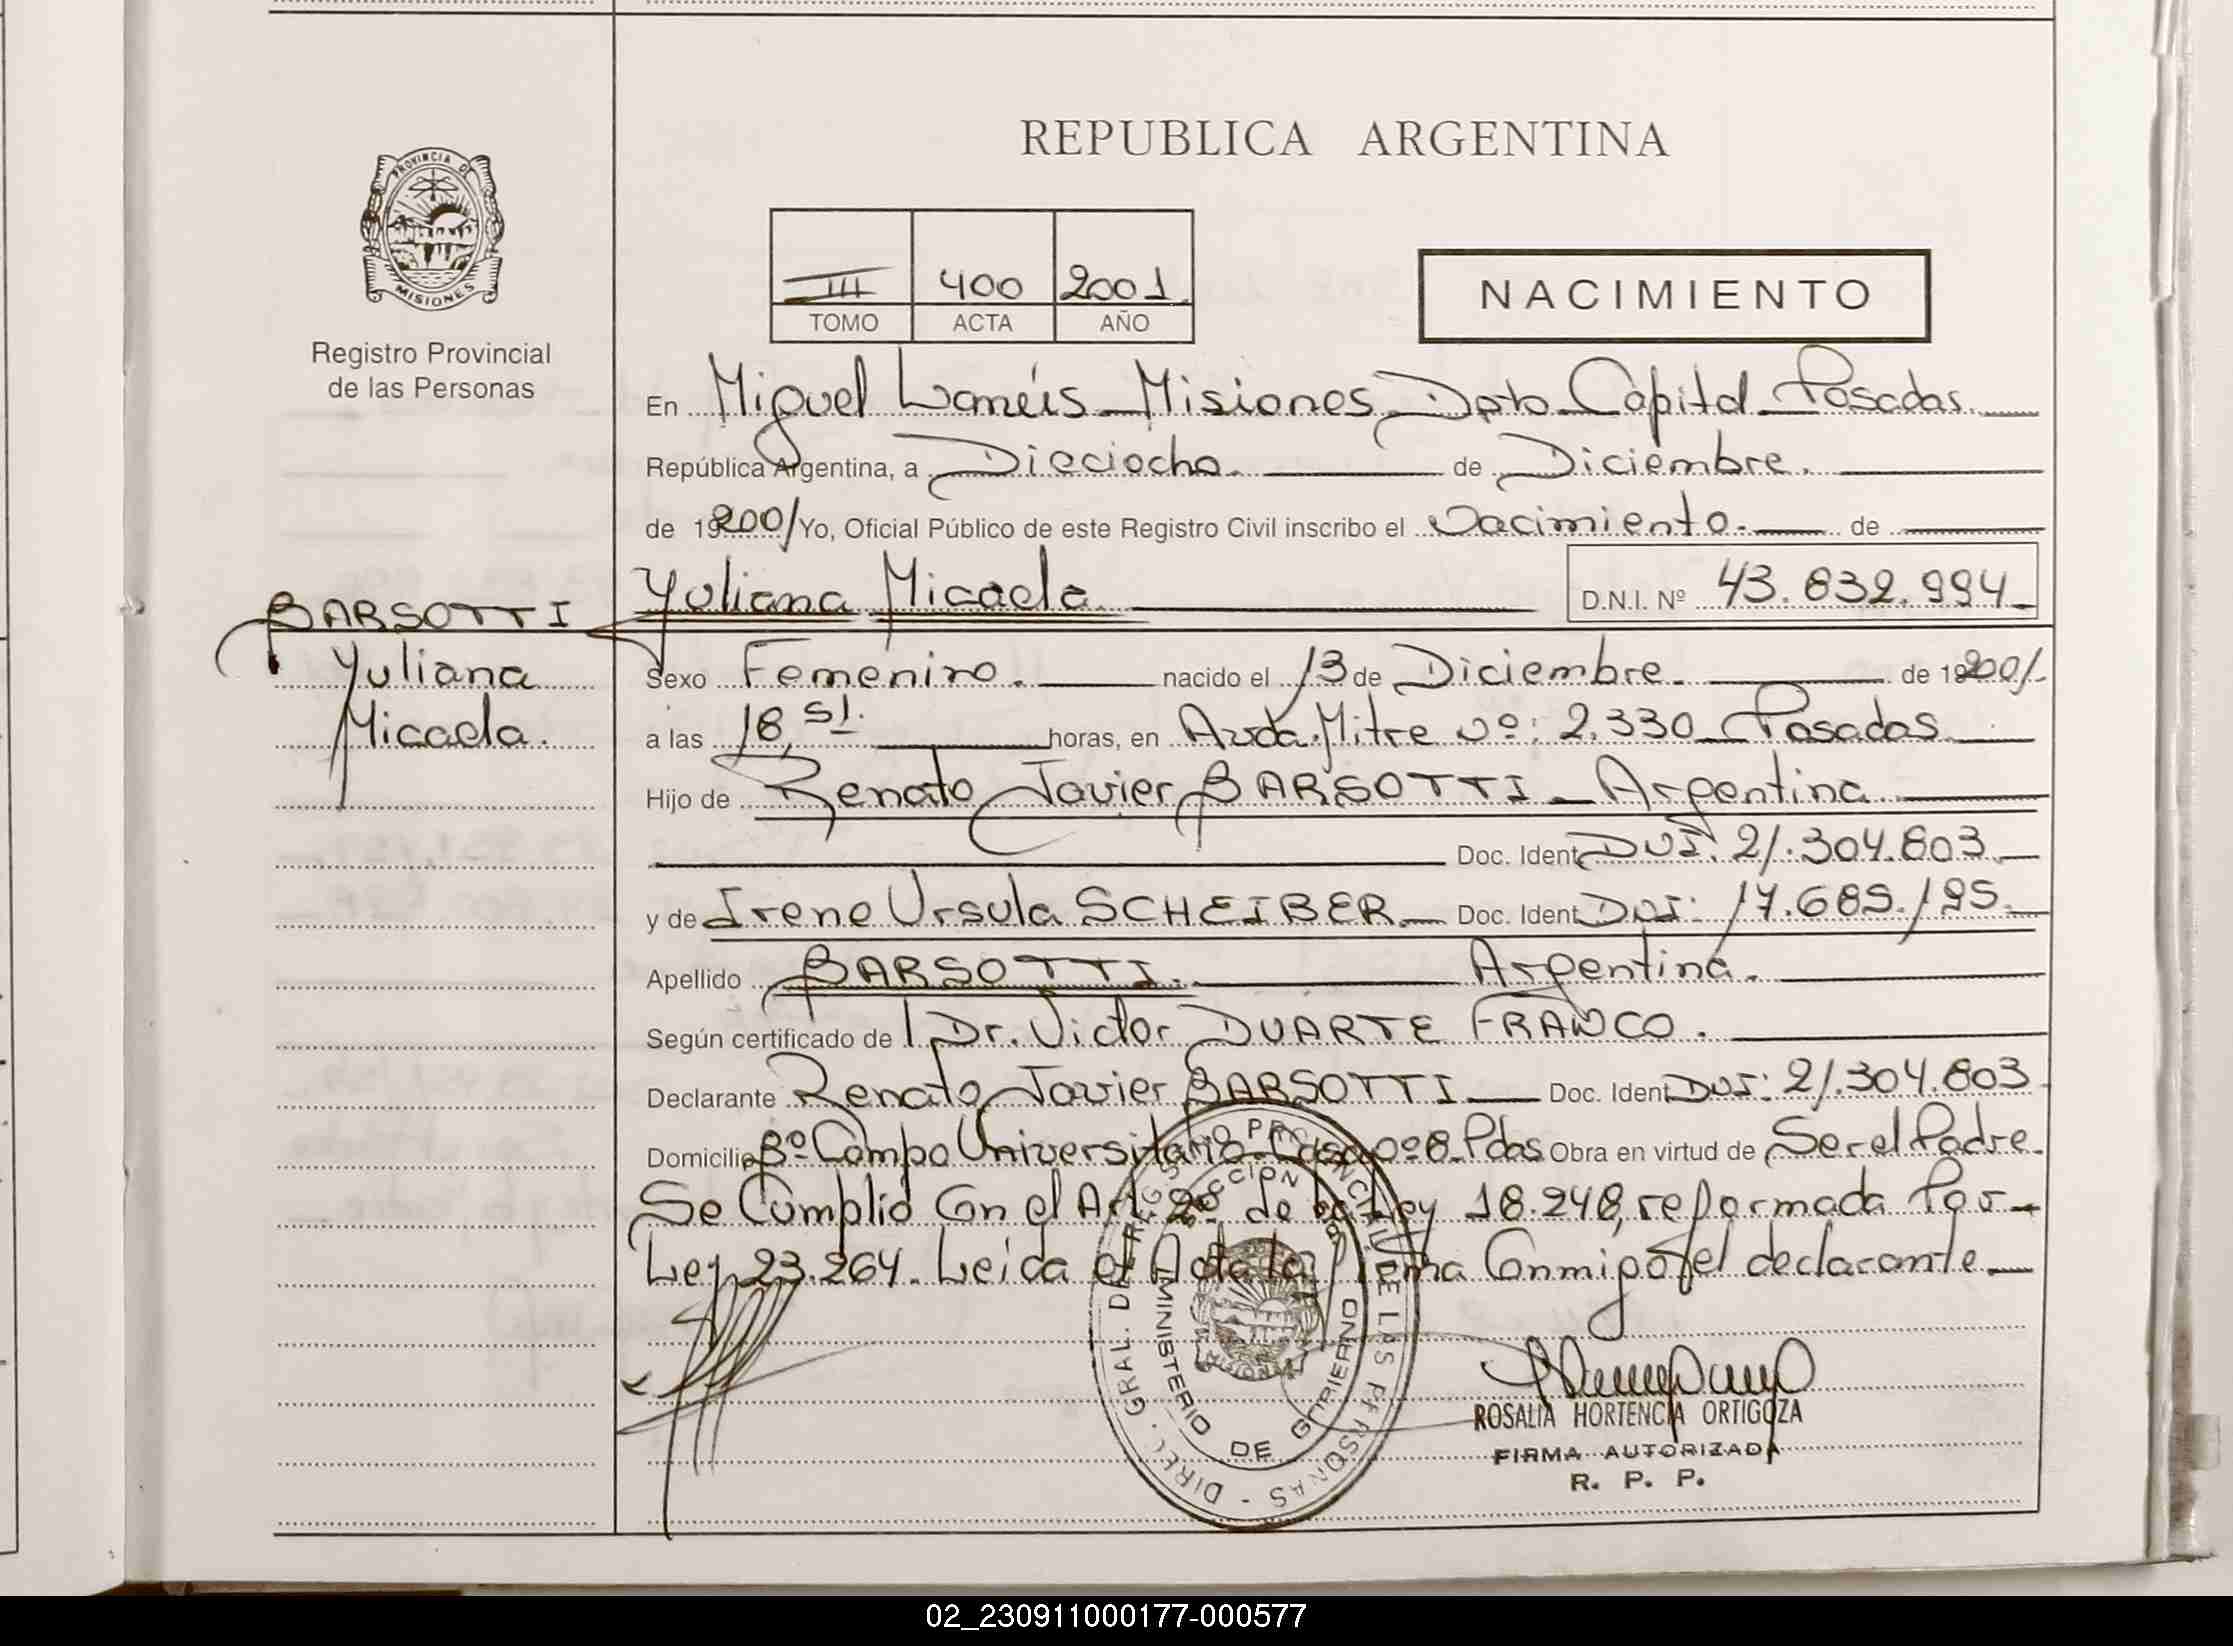 REPUBLICA ARGENTINA
PROVINCIA DE
MISIONES
Registro Provincial
de las Personas
III 400 2001
TOMO ACTA AÑO
NACIMIENTO
En Miguel Lanús Misiones Dpto Capital Posadas
República Argentina, a Dieciocho. de Diciembre.
de 192001 Yo, Oficial Público de este Registro Civil inscribo el Nacimiento. de
Yuliana Micaela D.N.I. Nº 43.832.994
BARSOTTI
Yuliana
Micaela.
Sexo Femenino. nacido el 13 de Diciembre. de 192001
a las 18,51. horas, en Avda. Mitre Nº: 2.330 Posadas
Hijo de Renato Javier BARSOTTI Argentina
Doc. Ident DNI. 21.304.803
y de Irene Ursula SCHEIBER Doc. Ident DNI: 17.685.195.
Apellido BARSOTTI. Argentina.
Según certificado de l Dr. Victor DUARTE FRANCO.
Declarante Renato Javier BARSOTTI Doc. Ident DNI: 21.304.803
Domicilio Bº Campo Universitario Casa nº 8. Pdas Obra en virtud de Ser el Padre.
Se Cumplió Con el Art. 2º de la Ley 18.248, reformada Por
Ley 23.264. Leída el Acta la firma Conmigo el declarante
DIREC. GRAL. DEL REGISTRO PROVINCIAL DE LAS PERSONAS
MINISTERIO DE GOBIERNO
ROSALIA HORTENCIA ORTIGOZA
FIRMA AUTORIZADA
R. P. P.
02_230911000177-000577